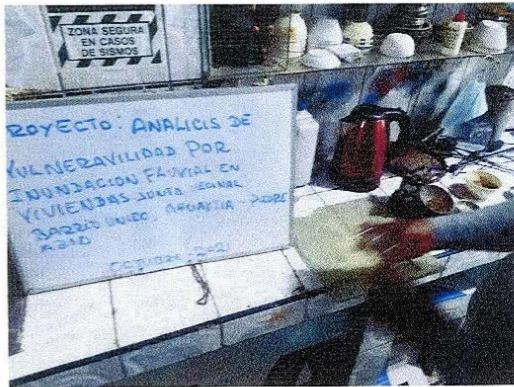 ZONA SEGURA
EN CASOS
DE SISMOS
ROYECTO: ANALICIS DE
VULNERAVILIDAD POR
INUNDACION FLUVIAL EN
VIVIENDAS JUNTO
BARRIO UNIDO, AGUAYTIA - PADRE
ABAD
OCTUBRE, 2021